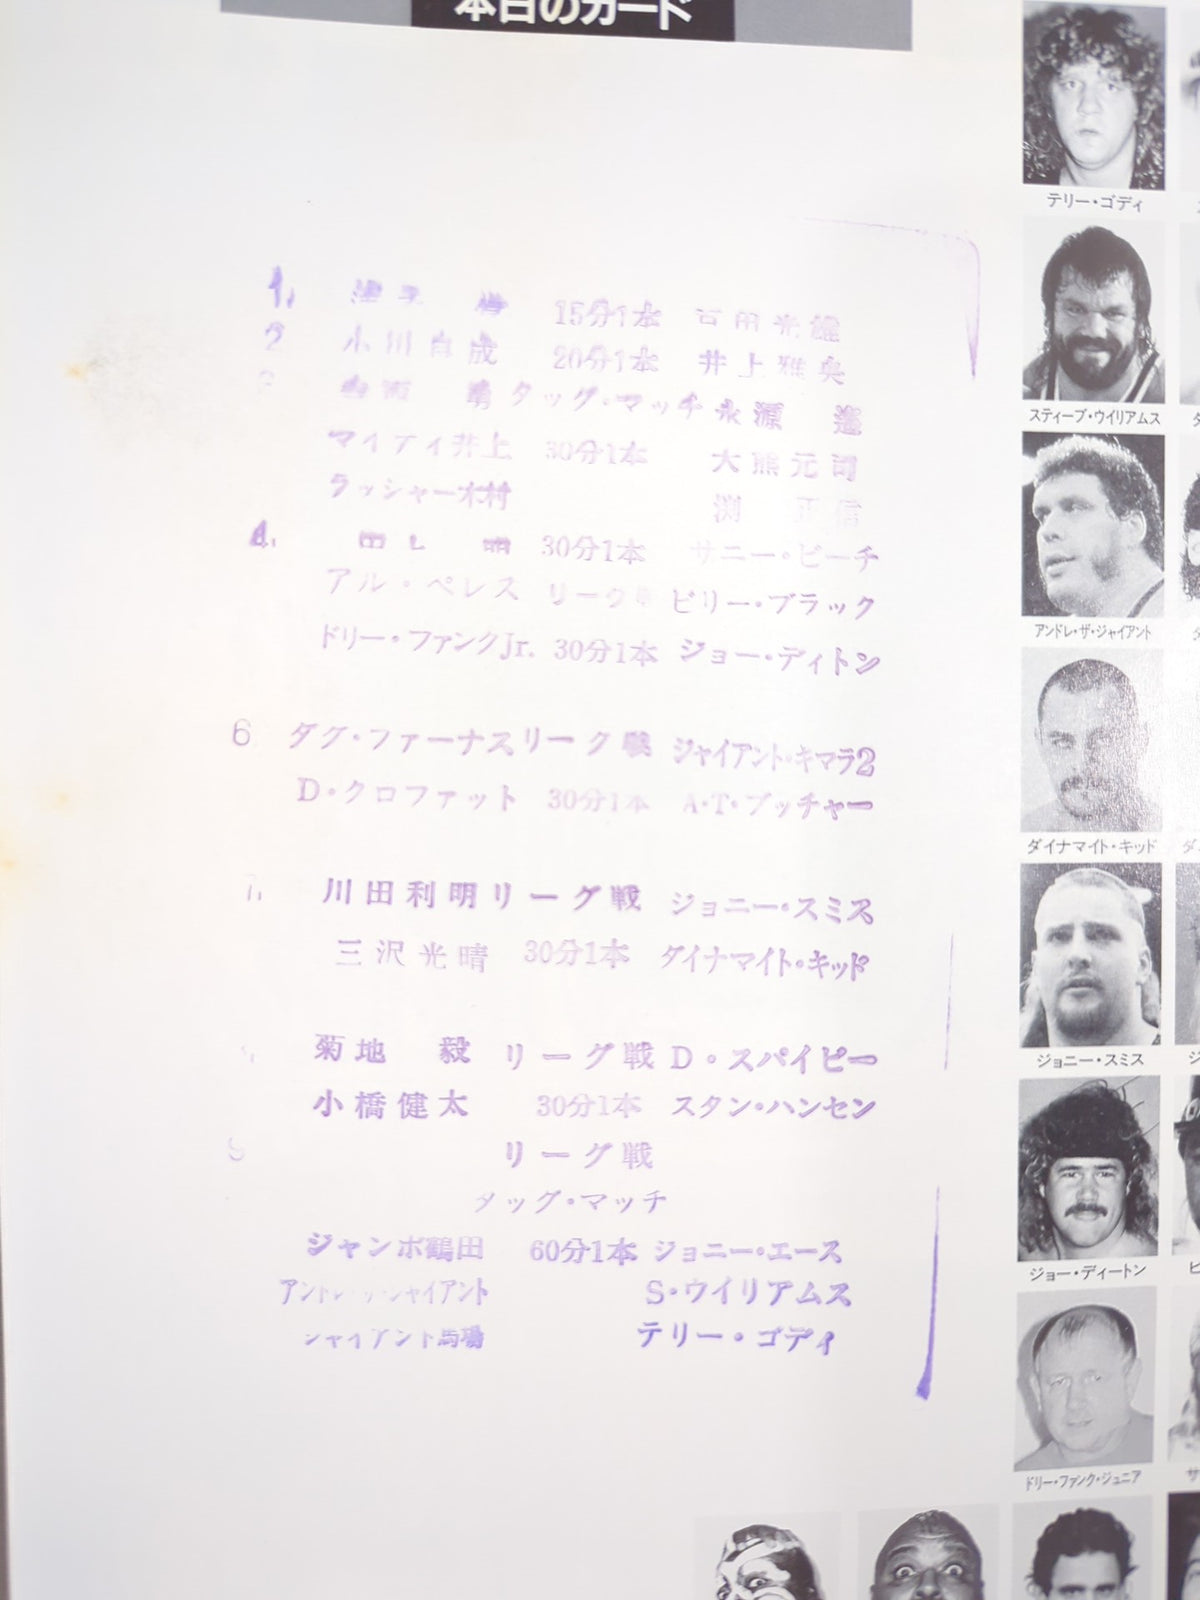 本日のカード
1. 15分1本
2 小川良成 20分1本 井上雅央
タッグ・マッチ 永源 遙
マイティ井上 30分1本 大熊元司
ラッシャー木村 渕 正信
4. 30分1本 サニー・ビーチ
アル・ペレス リーグ ビリー・ブラック
ドリー・ファンクJr. 30分1本 ジョー・ディトン
6 ダグ・ファーナス リーグ戦 ジャイアント・キマラ2
D・クロファット 30分1本 A・T・ブッチャー
7. 川田利明 リーグ戦 ジョニー・スミス
三沢光晴 30分1本 ダイナマイト・キッド
菊地 毅 リーグ戦 D・スパイビー
小橋健太 30分1本 スタン・ハンセン
リーグ戦
タッグ・マッチ
ジャンボ鶴田 60分1本 ジョニー・エース
アンドレ・ザ・ジャイアント S・ウイリアムス
ジャイアント馬場 テリー・ゴディ
テリー・ゴディ
スティーブ・ウイリアムス
アンドレ・ザ・ジャイアント
ダイナマイト・キッド
ジョニー・スミス
ジョー・ディートン
ドリー・ファンク・ジュニア